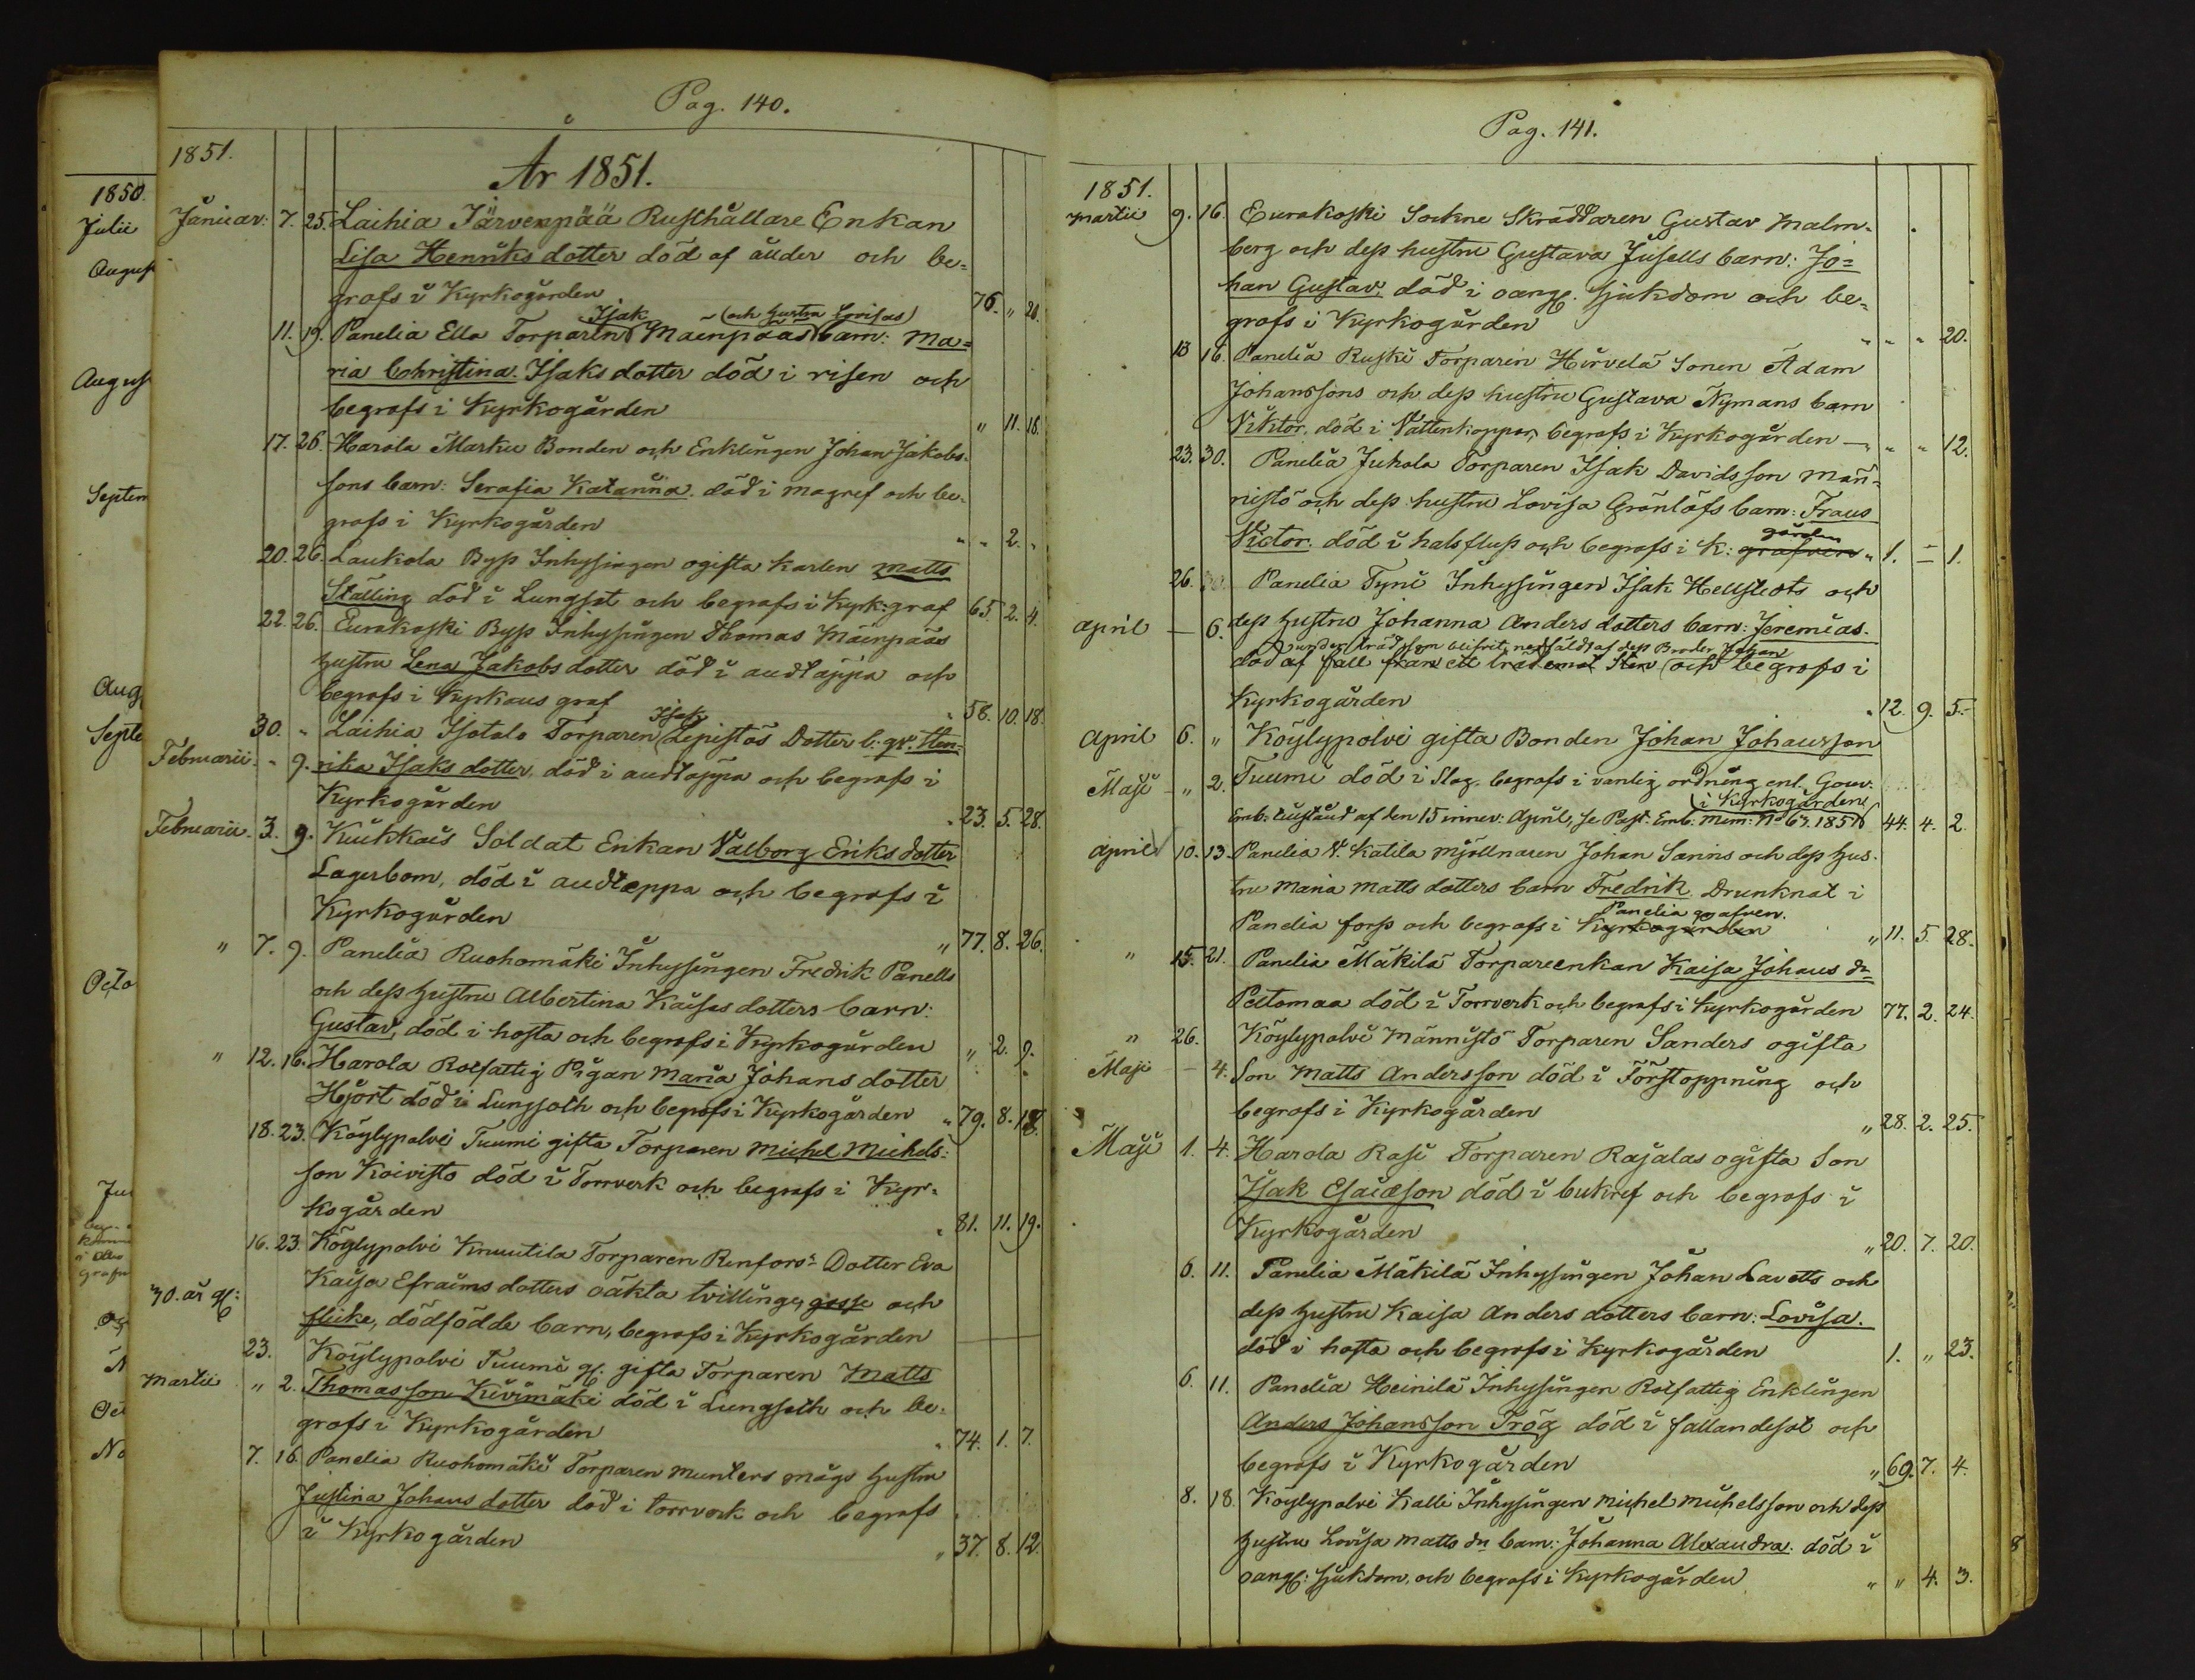 1850.
Julii
August
August
Septem
Aug
Septe
Octo
Oct
No
Pag. 140.
1851.
År 1851.
Januar: 7. 25. Laihia Järvenpää Rusthållare Enkan
Lisa Henriks dotter död af ålder och be-
grafs i Kyrkogården 76. " 20.
Isak (och hustru Lovisas)
11. 19. Panelia Ella Torparen Mäenpääs barn: Ma-
ria Christina. Isaks dotter död i risen och
begrafs i Kyrkogården " 11. 18.
17. 26. Harola Marku Bonden och Enklingen Johan Jakobs-
sons barn: Serafia Katarina. död i magref och be-
grafs i Kyrkogården " " 2. "
20. 26. Laukola Bys Inhysingen ogifta Karlen Matts
Ställing död i Lungsot och begrafs i Kyrk:graf 65. 2. 4.
22. 26. Eurakoski Bys Inhysingen Thomas Mäenpääs
hustru Lena Jakobs dotter död i andtäppa och
begrafs i Kyrkans graf " 58. 10. 18.
Isak
30. " Laihia Isotalo Torparen Lepistös Dotter b: qv: Hen-
Februarii " 9. rika Isaks dotter, död i andtäppa och begrafs i
Kyrkogården " 23. 5. 28.
Februarii. 3. 9. Kiukkais Soldat Enkan Valborg Eriks dotter
Lagerbom, död i andtäppa och begrafs i
Kyrkogården " 77. 8. 26.
" 7. 9. Panelia Ruohomäki Inhysingen Fredrik Panells
och dess hustru Albertina Kaisas dotters barn:
Gustav, död i hosta och begrafs i Kyrkogården " 2. 9.
" 12. 16. Harola Rotfattig Pigan Maria Johans dotter
Hjort död i Lungsoth och begrafs i Kyrkogården " 79. 8. 18.
18. 23. Köylypolvi Tuumi gifta Torparen Michel Michels-
son Koivisto död i Torrverk och begrafs i Kyr-
kogården " 81. 11. 19.
16. 23. Köylypolvi Knuutila Torparen Renfors's Dotter Eva
Kaisa Efraims dotters oäkta tvillinge, gosse och
30. år gl:
flicke, dödfödde barn, begrafs i Kyrkogården
23. Köylypolvi Tuumi gl: gifta Torparen Matts
Martii " 2. Thomasson Kivimäki död i Lungsoth och be-
grafs i Kyrkogården " 74. 1. 7.
7. 16. Panelia Ruohomäki Torparen Munters mågs hustru
Justina Johans dotter död i torrverk och begrafs
i Kyrkogården " 37. 8. 12.
Pag. 141.
1851.
Martii 9. 16. Eurakoski Sockne Skräddaren Gustav Malm-
berg och dess hustru Gustava Jusells barn: Jo-
han Gustav. död i oang: Sjukdom och be-
grafs i Kyrkogården " " " 20.
13 16. Panelia Ruski Torparen Hirvelä Sonen Adam
Johanssons och dess hustru Gustava Nymans barn
Viktor, död i Vattenkoppor, begrafs i Kyrkogården " " " 12.
23. 30. Panelia Juhola Torparen Isak Davidsson Män-
nistö och dess hustru Lovisa Grönlöfs barn: Frans
gården
Victor. död i halsfluss och begrafs i K: grafven " 1. " 1.
26. 30. Panelia Tyni Inhysingen Isak Hellstedts och
April — 6. dess hustru Johanna Anders dotters barn: Jeremias.
under träd som blifvit nedfäldt af dess Broder Johan
död af fall från ett träd emot Sten och begrafs i
Kyrkogården " 12. 9. 5.
April 6. " Köylypolvi gifta Bonden Johan Johansson
Maji " 2. Tuumi död i Slag. begrafs i vanlig ordning enl. Gouv:
i Kyrkogården
Emb: tillstånd af den 15 innev: April, se Past: Emb: Mem: No 67. 1851 44. 4. 2.
April 10. 13. Panelia N. Katila Mjöllnaren Johan Sarins och dess hus-
tru Maria Matts dotters barn Fredrik Drunknat i
Panelia grafven.
Panelia fors och begrafs i Kyrkogården " 11. 5. 28.
" 15. 21. Panelia Mäkilä Torpareenkan Kaisa Johans dr
Peltomaa död i Torrverk och begrafs i Kyrkogården 77. 2. 24.
" 26. Köylypolvi Männistö Torparen Sanders ogifta
Maji — 4. Son Matts Andersson död i Förstoppning och
begrafs i Kyrkogården " 28. 2. 25.
Maji 1. 4. Harola Rasi Torparen Rajalas ogifta Son
Isak Esaiesson död i bukref och begrafs i
Kyrkogården " 20. 7. 20.
6. 11. Panelia Mäkilä Inhysingen Johan Lavetts och
dess hustru Kaisa Anders dotters barn: Lovisa.
död i hosta och begrafs i Kyrkogården 1. " 23.
6. 11. Panelia Heinilä Inhysingen Rotfattig Enklingen
Anders Johansson Trög död i fallandesot och
begrafs i Kyrkogården " 69. 7. 4.
8. 18. Köylypolvi Kalli Inhysingen Michel Michelsson och dess
hustru Lovisa Matts dr barn: Johanna Alexandra. död i
oang: sjukdom, och begrafs i Kyrkogården " " 4. 3.